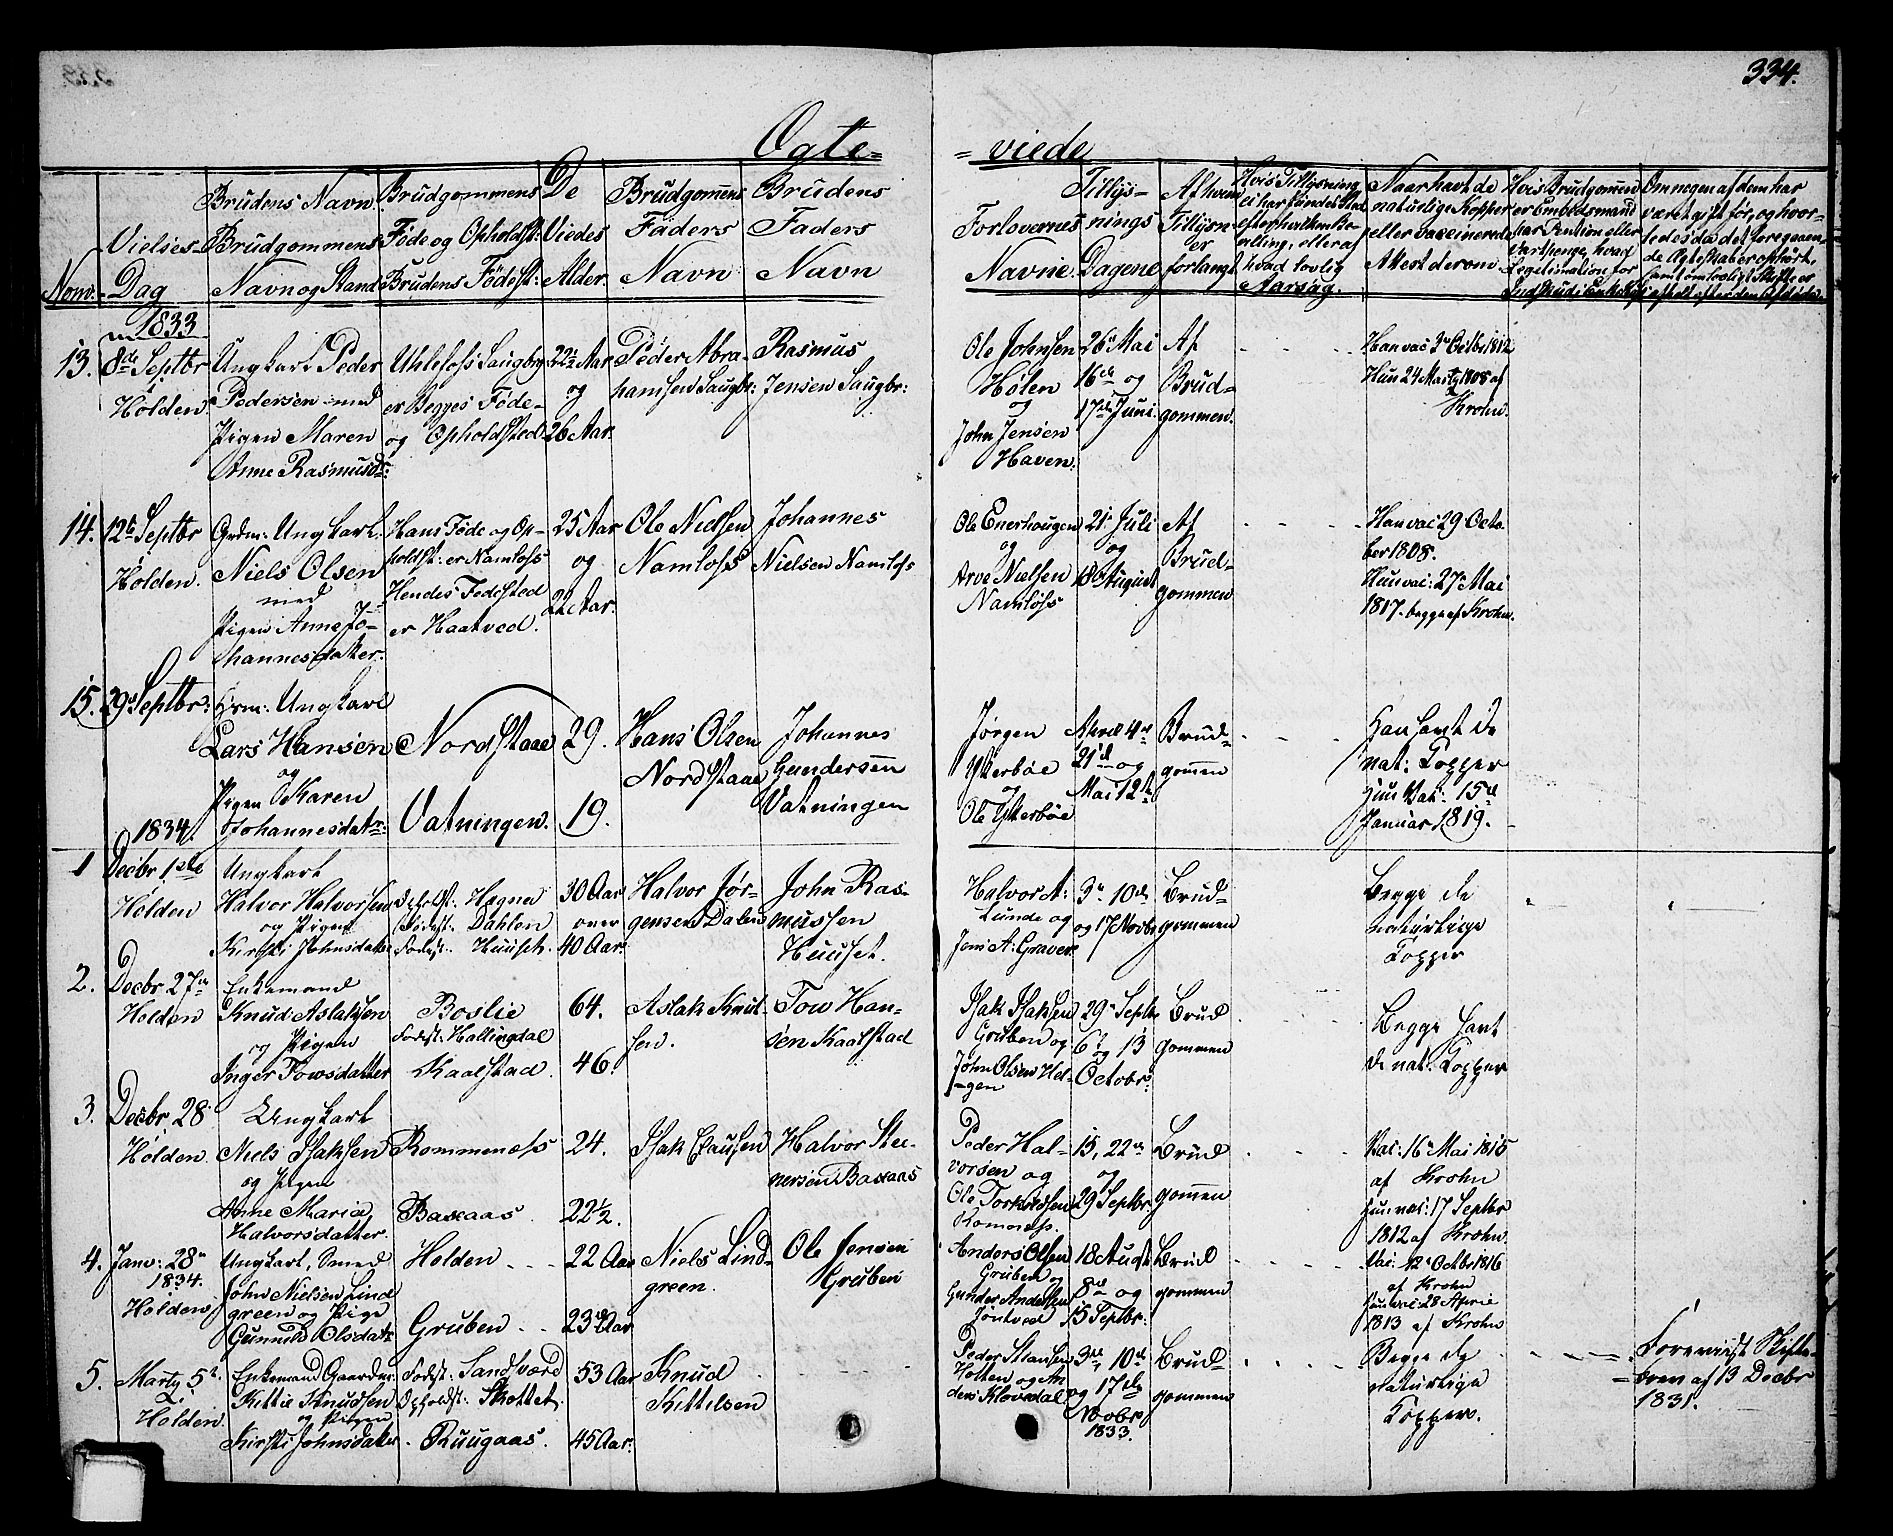 334.
Ægte= = viede
Nom.
Vielses-
Dag
Brudens Navn
Brudgommens
Navn og Stand
Brudgommens
Føde og Opholdst:
Brudens Fødest:
De
Viedes
Alder.
Brudgom̄ens
Faders
Navn
Brudens
Faders
Navn
Forlovernes
Navne
Tillys-
nings
Dagene
Af hvem
Tillysn-
er
forlangt
Hvis Tillysning
ei har fundet Sted
efter hvilken Be-
villing, eller af
hvad lovlig
Aarsag.
Naar havt de
naturlige Kopper
eller vaccinerede
Attest derom
Hvis Brudgom̄en
er Enroldsmand
har Pention eller
Vartpenge, hvad
Legitimation for
Indskud i Enkek:
Om nogen af dem har
været gift før, og hvor-
ledes da det foregaaen-
de Ægteskab er ophørt,
samt om lovligt Skifte er
afholdt efter den Afdøde.
1833
13. 8de Septbr
i
Holden.
Ungkarl Peder
Pedersen med
Pigen Maren
Anne Rasmusd:
Uhlefoss Saugbrg
er Begges Føde-
og Opholdsted.
22½ Aar
og
26 Aar.
Peder Abra-
hamsen Saugbr:
Rasmus
Jensen Saugbr:
Ole Johnsen
Holen
og
John Jensen
Haven.
26 Mai
16de og
17de Juni.
Af
Brud-
gommen.
Han vac 2de Octbr 1812
Hun 24 Marty 1808 af
Krohn.
14. 12te Septbr
Holden.
Grdm: Ungkarl
Niels Olsen
med
Pigen Anne Jo-
hannesdatter.
Hans Føde og Op-
holdst: er Namloss
Hendes Fødested
er Haatved.
25 Aar
og
22 Aar.
Ole Nielsen
Namloss
Johannes
Nielsen Namloss
Ole Enerhougen
og
Arve Nielsen
Namloss
21. Juli
og
18 August
Af
Brud-
gommen
Han vac 29 Octo-
ber 1808.
Hun vac: 27de Mai
1817. begge af Krohn.
15. 29de Septbr:
Grm: Ungkarl
Lars Hansen
og
Pigen Karen
Johannesdatr:
Nordstaae
Vatningen.
29.
19.
Hans Olsen
Nordstaae
Johannes
Gundersen
Vatningen
Jørgen
Ytterbøe
og
Ole Ytterbøe
April 4de
21de og
Mai 12te
Brud-
gom̄en
Han havt de
nat: Kopper
Hun Vak: 15de
Januar 1819.
1834.
1 Decbr 1ste
Holden
Ungkarl
Halvor Halvorsen
og Pigen
Kirsti Johnsdatter
Opholst: Hogna
Fødest: Dahlen
Fødest: Huuset.
30 Aar
over
40 Aar.
Halvor Jør-
gensen Dalen
John Ras-
mussen
Huuset.
Halvor A:
Lunde og
Jens A: Graver
3de 10de
og 17 Novbr
Brud-
gommen
Begge de
naturlige
Kopper
2. Decbr 27de
Holden
Enkemand
Knud Aslaksen
og Pigen
Inger Towsdatter
Boslie
Fødest: Hallingdal
Kaalstad.
64.
46.
Aslak Knut-
sen.
Tow Han-
sen Kaalstad
Isak Isaksen
Gruben og
John Olsen Hel-
gen
29de Septbr
6te og 13
Octobr:
Brud
gommen
Begge havt
de nat: Kopper
3. Decbr. 28
Holden.
Ungkarl
Niels Isaksen
og Pigen
Anne Marie
Halvorsdatter.
Rommenæss
Baxaas
24.
22½.
Isak Clausen
Halvor Stee-
nersen Baxaas
Peder Hal-
vorsen og
Ole Torkildsen
Romnæs.
15, 22de
og
29 Septbr
Brud
gom̄en
Vac: 16de Mai 1815
af Krohn
Hun vac: 17 Septbr
1812 af Krohn.
4. Janv: 28de
1834.
Holden.
Ungkarl, Smed
John Nielsen Lind
green og Pige
Gunnild Olsdatr
Holden
Gruben
22 Aar
23 Aar
Niels Lind-
green.
Ole Jensen
Gruben
Anders Olsen
Gruben og
Gunder Andersen
Jontved
18 August
8de og
15 Septbr.
Brud
gommen
Vac: 12te Octbr 1816
af Krohn
Hun vac: 28 April
1813 af Krohn
5. Marty 5te
i
Holden.
Enkemand Gaardm:
Kittil Knudsen
og Pigen
Kirsti Johnsdatter
Fødest: Sandsværd
Opholdst: Skottet.
Ruugaas.
53 Aar
45 Aar.
Knud
Kittelsen
Peder
Holten og An
ders Klovedal
3de, 10de
og 17de
Novbr.
1833.
Brud-
gommen
Begge de
naturlige
Kopper.
Foreviist Skifte-
brev af 13 Decbr
1831.